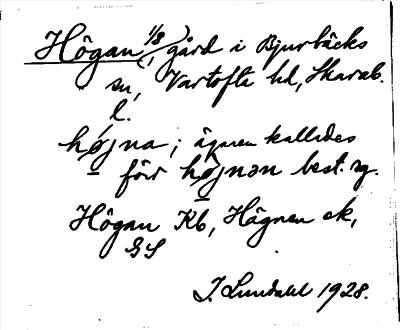 Högan 1/8, gård i Bjurbäcks
sn, Vartofta hd, Skarab.
l.
hǿjna; ägaren kallades
för hǿjnən best. sg.
Högan Kb, Högnen ek,
GS
J. Lundahl 1928.